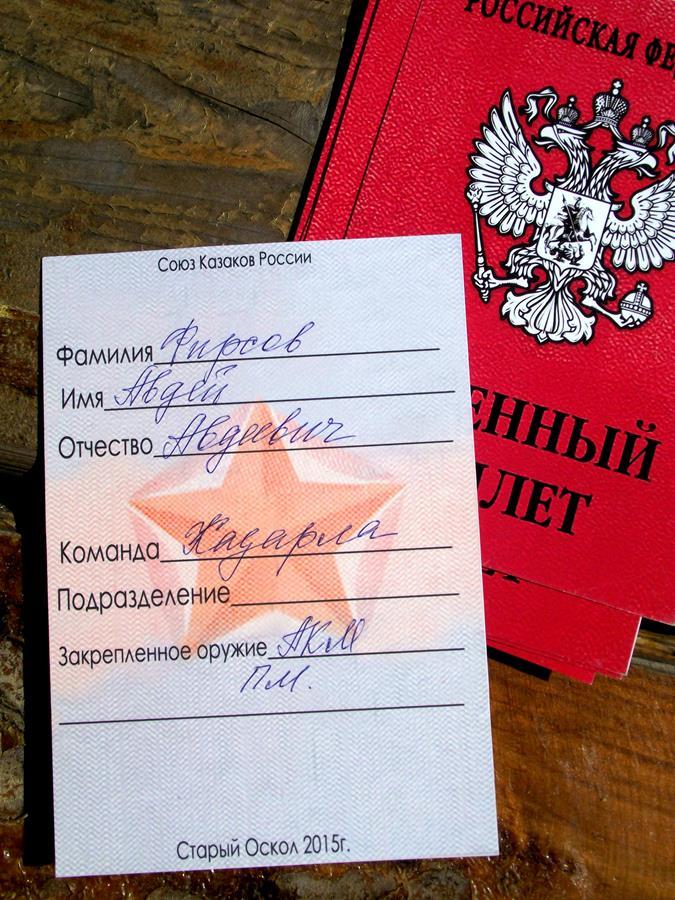 РОССИЙСКАЯ ФЕД
ЕННЫЙ
ЛЕТ
Союз Казаков России
Фамилия Фирсов
Имя Авдей
Отчество Авдеевич
Команда Хадарла
Подразделение
Закрепленное оружие АКМ
ПМ.
Старый Оскол 2015г.